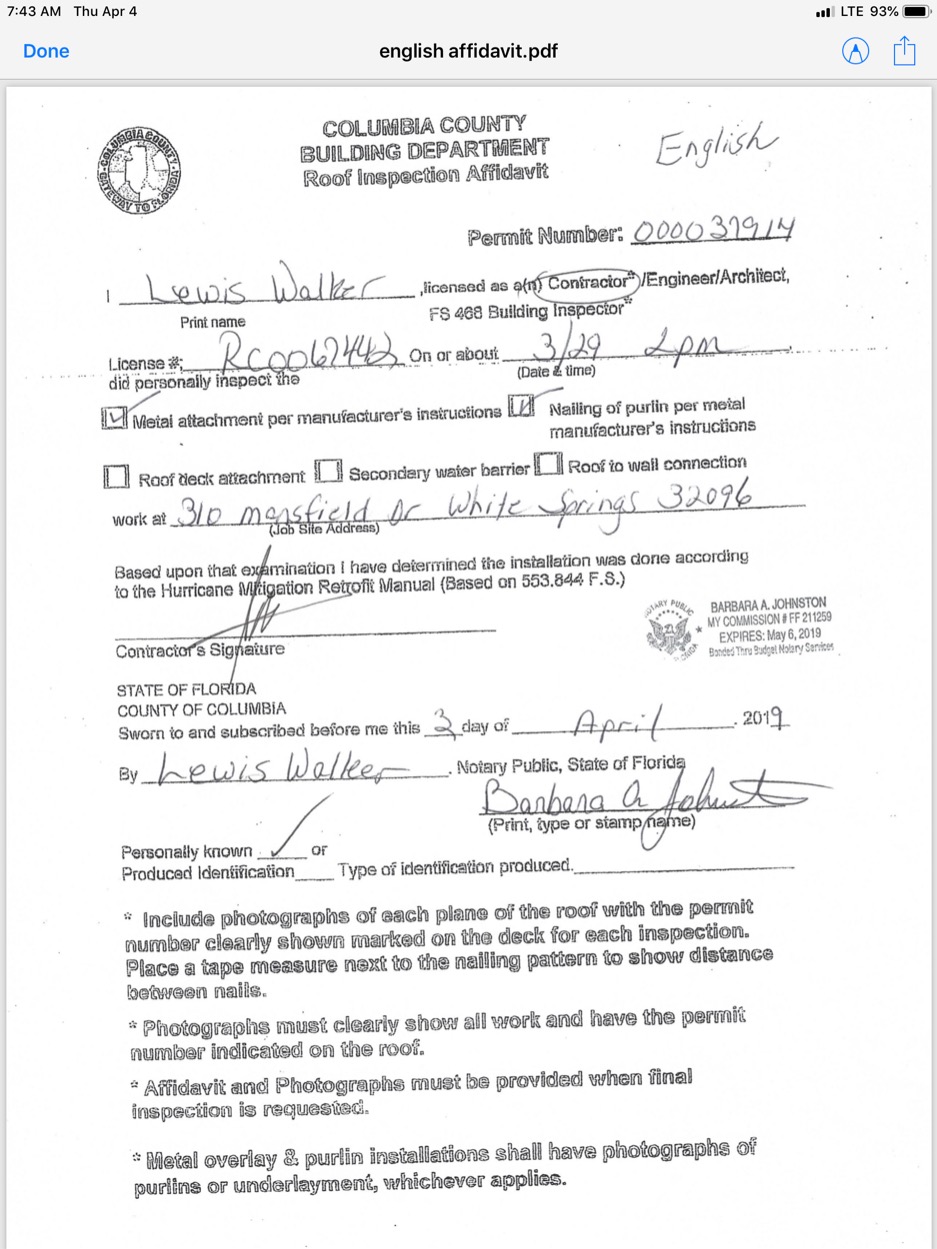 7:43 AM Thu Apr 4
LTE 93%
Done
english affidavit.pdf
COLUMBIA COUNTY
BUILDING DEPARTMENT
Roof Inspection Affidavit
COLUMBIA COUNTY
GATEWAY TO FLORIDA
English
Permit Number: 000037914
I Lewis Walker ,licensed as a(n) Contractor*/Engineer/Architect,
Print name
FS 468 Building Inspector*
License #: RC0067442 On or about 3/29 2pm
did personally inspect the
(Date & time)
Metal attachment per manufacturer's instructions
Nailing of purlin per metal
manufacturer's instructions
Roof deck attachment
Secondary water barrier
Roof to wall connection
work at 310 mansfield Dr White Springs 32096
(Job Site Address)
Based upon that examination I have determined the installation was done according
to the Hurricane Mitigation Retrofit Manual (Based on 553.844 F.S.)
Contractor's Signature
NOTARY PUBLIC
BARBARA A. JOHNSTON
MY COMMISSION # FF 211259
EXPIRES: May 6, 2019
Bonded Thru Budget Notary Services
STATE OF FLORIDA
COUNTY OF COLUMBIA
Sworn to and subscribed before me this 3 day of April . 2019
By Lewis Walker . Notary Public, State of Florida
Barbara A Johnst
(Print, type or stamp name)
Personally known or
Produced Identification Type of identification produced.
* Include photographs of each plane of the roof with the permit
number clearly shown marked on the deck for each inspection.
Place a tape measure next to the nailing pattern to show distance
between nails.
* Photographs must clearly show all work and have the permit
number indicated on the roof.
* Affidavit and Photographs must be provided when final
inspection is requested.
* Metal overlay & purlin installations shall have photographs of
purlins or underlayment, whichever applies.